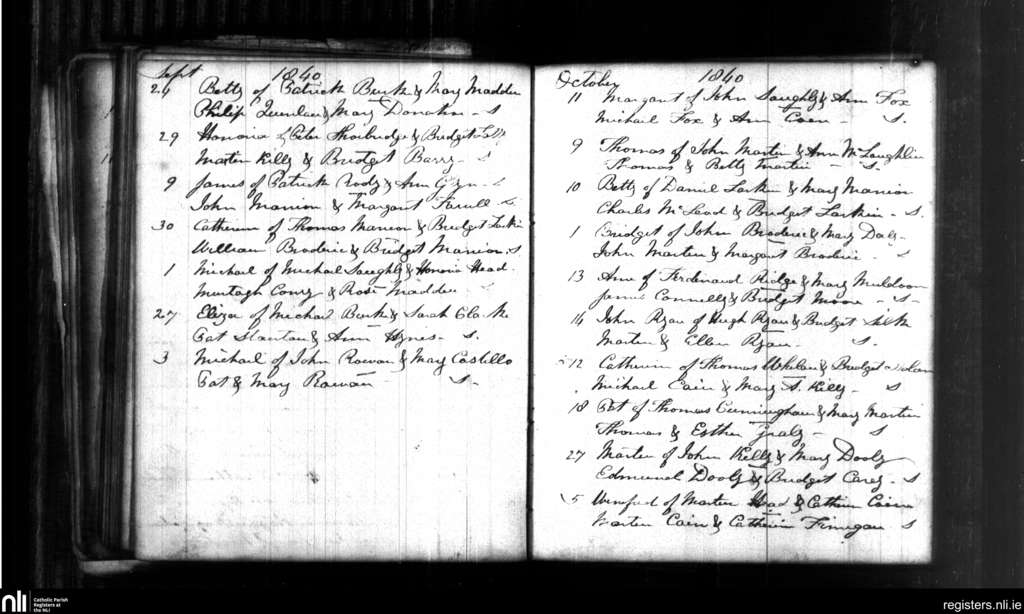 Sept 1840
24 Betty of Patrick Burk & Mary Madden
Philip Quinlan & Mary Donohu - S
29 Honoria of Peter Thorbridge & Bridget
Martin Kelly & Bridget Barry - S
9 James of Patrick Rody & Ann
John Manion & Margaret Farrell
30 Catherine of Thomas Manion & Bridget Larkin
William Broderic & Bridget Manion. S
1 Michael of Michael Saughly & Honoria Head
Murtagh Coury & Rose Madden
27 Eliza of Michael Burk & Sarah Clarke
Pat Stanton & Ann Hynes - S.
3 Michael of John Rowan & Mary Costillo
Pat & Mary Rowan - S -
October 1840
11 Margaret of John Saughly & Ann Fox
Michael Fox & Ann Coen - S.
9 Thomas of John Martin & Ann McLaughlin
Thomas & Betty Martin - S.
10 Betty of Daniel Larkin & Mary Manion
Charles McLead & Bridget Larkin - S.
1 Bridget of John Broderic & Mary Daly -
John Martin & Margaret Broderic - S.
13 Ann of Ferdinand Ridge & Mary Muldoon
James Connelly & Bridget Moore - S -
14 John Ryan of Hugh Ryan & Bridget Silk
Martin & Ellen Ryan - S.
12 Catherine of Thomas Whelan & Bridget Nolan
Michael Cain & Mary S. Kelly - S
18 Pat of Thomas Cunningham & Mary Martin
Thomas & Esther Gealy - S
27 Martin of John Kelly & Mary Dooly
Edmund Dooly & Bridget Carey - S
5 Winifred of Martin Head & Catherin
Martin Cain & Catherin Finnegan S
nli Catholic Parish
Registers at
the NLI
registers.nli.ie